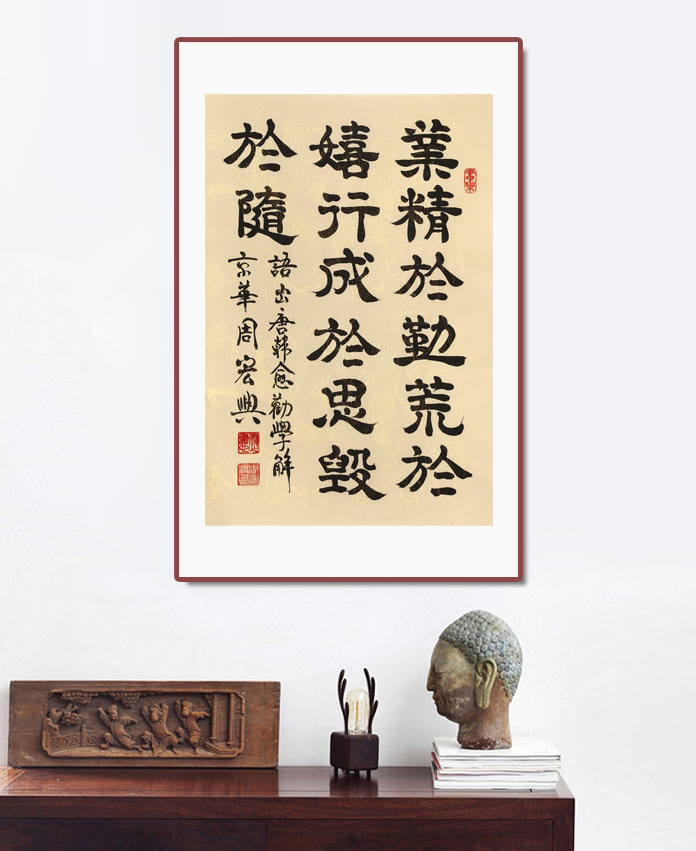 業精於勤荒於
嬉行成於思毀
於隨
語出唐韩愈勸學解
京華周宏興